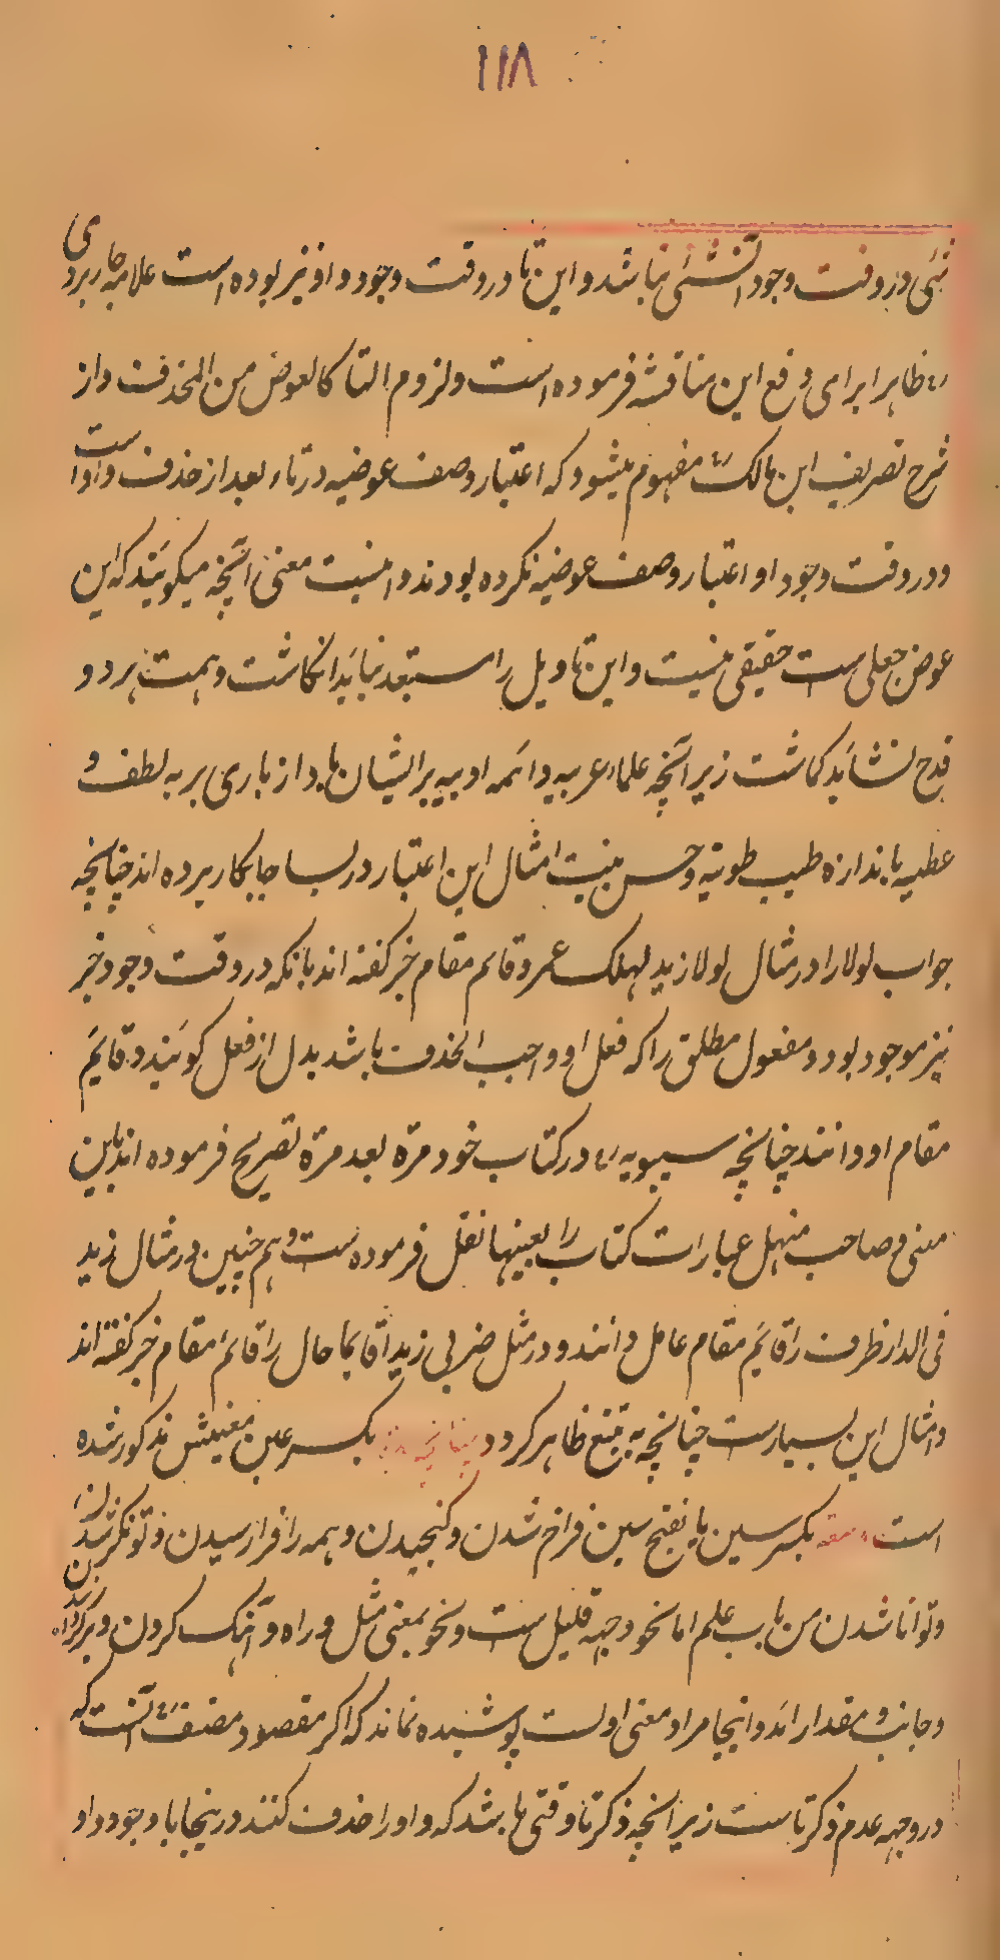 ۱۱۸
شئی در وقت وجود آنشئی نباشد و این تا در وقت وجود واو نیز بوده است علامه جاربردی
ره ظاهرا برای دفع این مناقشه فرموده است ولزوم التا کالعوض من المحذوف و از
شرح تصریف ابن مالک ره مفهوم میشود که اعتبار وصف عوضیه در تاء بعد از حذف واو است
و در وقت وجود او اعتبار وصف عوضیه نکرده بودند و اینست معنی آنچه میگویند که این
عوض جعلی است حقیقی نیست و این تاویل را مستبعد نباید انگاشت و همت برد و
قدح نشاید گماشت زیرا آنچه علماء عربیه و ائمه ادبیه بر ایشان باد از باری بر به لطف و
عطیه باندازه طیب طویة و حسن نیت امثال این اعتبار در بسا جا بکار برده اند چنانچه
جواب لولا را در مثال لولا زید لهلک عمرو قائم مقام خبر گفته اند بآنکه در وقت وجود خبر
نیز موجود بود و مفعول مطلق را که فعل او واجب الحذف باشد بدل از فعل گویند و قایم
مقام او دانند چنانچه سیبویه ره در کتاب خود مرة بعد مرة تصریح فرموده اند باین
معنی و صاحب منهل عبارات کتاب را بعینها نقل فرموده است و هم چنین در مثال زید
فی الدار ظرف را قایم مقام عامل دانند و در مثل ضربی زیدا قائما حال را قائم مقام خبر گفته اند
و امثال این بسیارست چنانچه به تتبع ظاهر گردد بکسر عین معنیش مذکور شده
است بکسر سین یا بفتح سین فراخ شدن و گنجیدن و همه را فرا رسیدن و تونگر شدن
و توانا شدن من باب علم اما نحو وجهه قلیل ست و نحو بمعنی مثل و راه و آهنگ کردن و
و جانب و مقدار آمد و اینجا مراد معنی اولست پوشیده نماند که اگر مقصود مصنف ره آنست که
در وجهه عدم ذکر تا ست زیرا آنچه ذکر تا وقتی باشد که واو را حذف کنند در ینجا با وجود واو